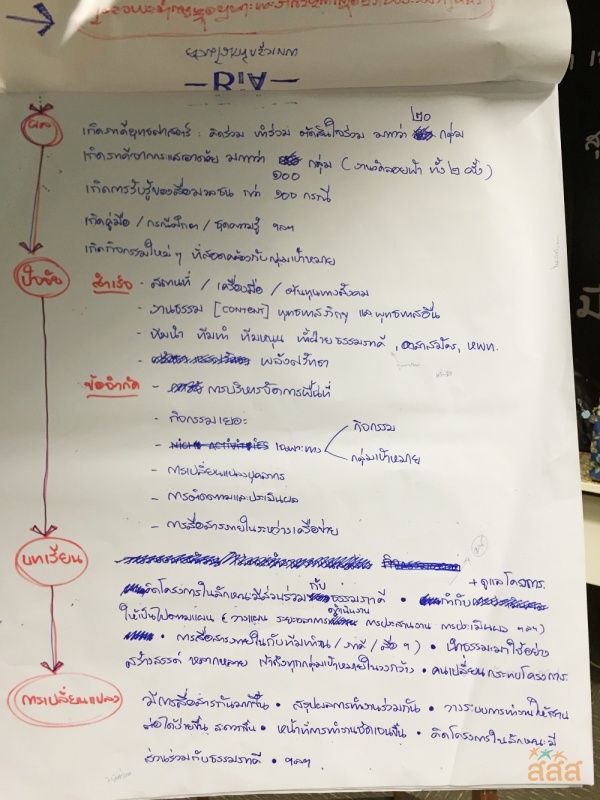 ผล
เกิดภาคียุทธศาสตร์ : คิดร่วม ทำร่วม ตัดสินใจร่วม มากกว่า ๒๐ กลุ่ม
เกิดภาคีอาการและอาศัย มากกว่า ๑๐๐ กลุ่ม (งานวัดลอยฟ้า ทั้ง ๒ ครั้ง)
เกิดการรับรู้ของสื่อมวลชน กว่า ๑๐๐ กรณี
เกิดคู่มือ / กรณีศึกษา / ชุดความรู้ ฯลฯ
เกิดกิจกรรมใหม่ ๆ ที่สอดคล้องกับกลุ่มเป้าหมาย
ปัจจัย
สำเร็จ - สถานที่ / เครื่องมือ / ต้นทุนทางสังคม
- งานธรรม [CONTENT] พุทธทาสภิกขุ และพุทธทาสอื่น
- ทีมนำ ทีมทำ ทีมหนุน ทั้งฝ่ายธรรมภาคี, อาสาสมัคร, หพท.
- พลังศรัทธา
ข้อจำกัด - การบริหารจัดการพื้นที่
- กิจกรรมเยอะ
- เฉพาะทาง กิจกรรม
กลุ่มเป้าหมาย
- การเปลี่ยนแปลงบุคลากร
- การติดตามและประเมินผล
- การสื่อสารภายในระหว่างเครือข่าย
บทเรียน
คิดโครงการในลักษณะมีส่วนร่วมกับธรรมภาคี • กำกับ + ดูแลโครงการ
ให้เป็นไปตามแผน (วางแผน ระยะเวลาการดำเนินงาน การประสานงาน การประเมินผล ฯลฯ)
• การสื่อสารภายในกับทีมทำงาน / ภาคี / สื่อ ๆ ) • นำธรรมะมาใช้อย่าง
สร้างสรรค์ หลากหลาย เข้าถึงทุกกลุ่มเป้าหมายในวงกว้าง • คนเปลี่ยน กระทบโครงการ
การเปลี่ยนแปลง
มีการสื่อสารกันมากขึ้น • สรุปผลการทำงานร่วมกัน • วางระบบการทำงานให้สาน
ต่อได้ง่ายขึ้น สะดวกขึ้น • หน้าที่การทำงานชัดเจนขึ้น • คิดโครงการในลักษณะมี
ส่วนร่วมกับธรรมภาคี • ฯลฯ
สสส